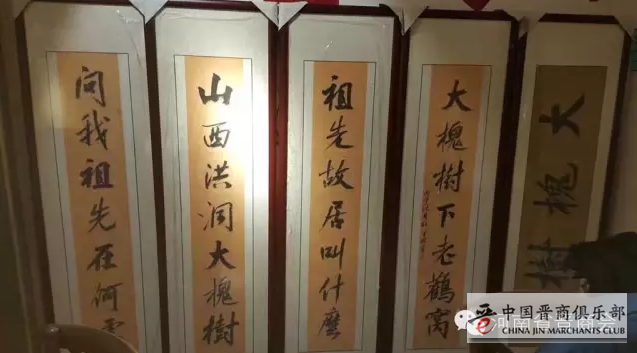 问我祖先在何
山西洪洞大槐樹
祖先故居叫什麼
大槐樹下老鸛窩
大槐樹
晋
中国晋商俱乐部
CHINA JIN MERCHANTS CLUB
河南省晋商会